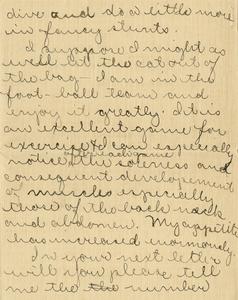 dive and do a little more
in fancy stunts.
I suppose I might as
well let the cat out of
the bag - I am in the
foot-ball team and
enjoy it greatly. It is
an excellent game for
excercise & I can especially
after a game
notice the soreness and
consequent developement
of muscles especially
those of the back neck
and abdomen. My appetite
has increased enormously.
In your next letter
will you please tell
me the the number